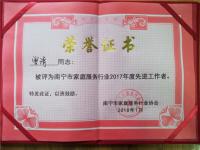 荣誉证书
同志：
被评为南宁市家庭服务行业2017年度先进工作者。
特发此证，以资鼓励。
南宁市家庭服务行业协会
2018年1月